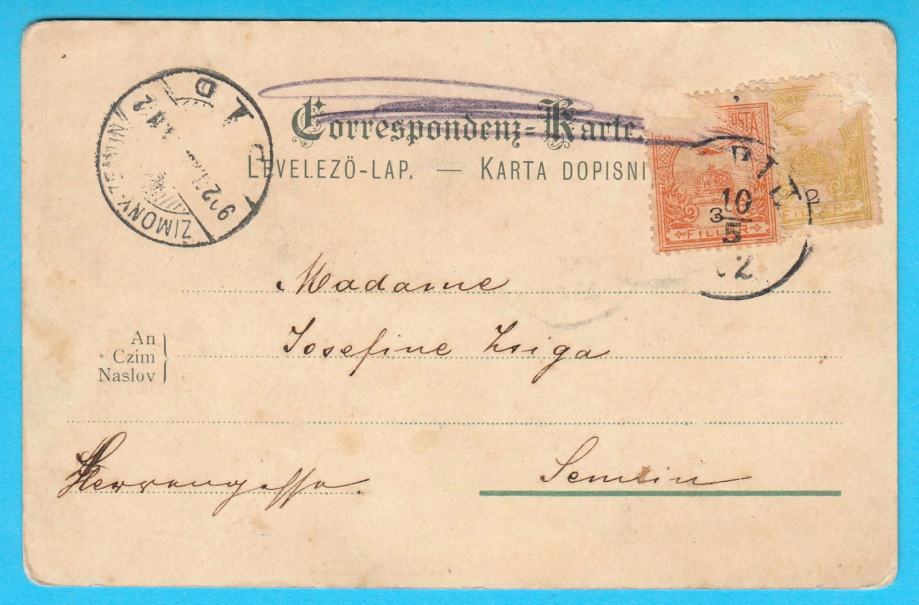 Correspondenz-Karte.
LEVELEZÖ-LAP. — KARTA DOPISNI
ZIMONY-ZEMUN
902
3
FILLÉR
10
5
02
2
Madame
An
Czim
Naslov
Josefine Zsiga
Herrengasse.
Semlin